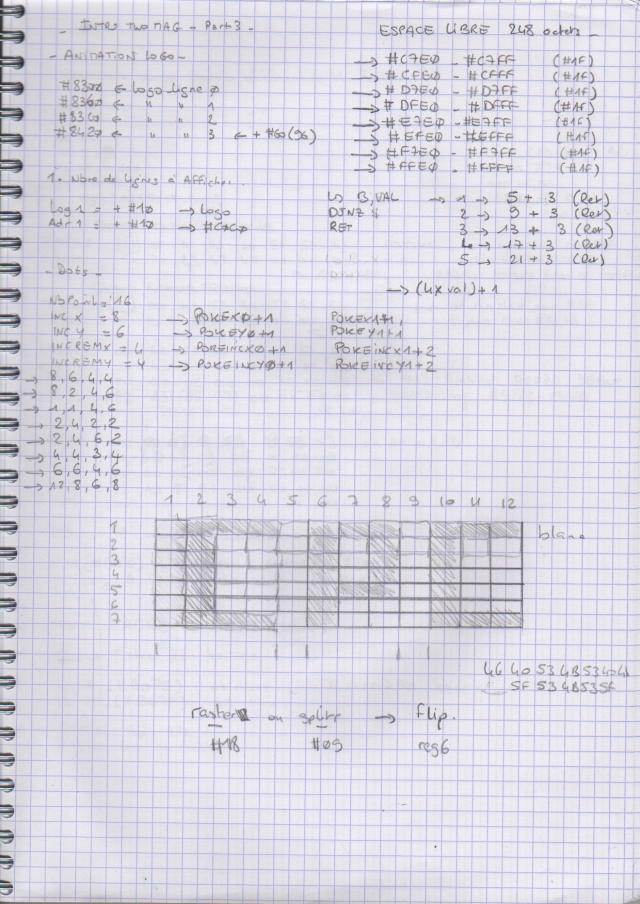 - INTRO TWO MAG - Part 3 -
ESPACE LIBRE 248 octets -
- ANIMATION LOGO -
→ #C7E0 - #C7FF (#1F)
→ #CFE0 - #CFFF (#1F)
→ #D7E0 - #D7FF (#1F)
→ #DFE0 - #DFFF (#1F)
→ #E7E0 - #E7FF (#1F)
→ #EFE0 - #EFFF (#1F)
→ #F7E0 - #F7FF (#1F)
→ #FFE0 - #FFFF (#1F)
#8300 ← Logo ligne 0
#8360 ← " " 1
#83C0 ← " " 2
#8420 ← " " 3 ← + #60 (96)
1. Nbre de lignes à Afficher.
Log 1 = + #10 → Logo
Adr 1 = + #10 → #C0C0
LD B,VAL → 1 → 5 + 3 (Ret)
DJNZ $ 2 → 9 + 3 (Ret)
RET 3 → 13 + 3 (Ret)
4 → 17 + 3 (Ret)
5 → 21 + 3 (Ret)
→ (4 x val) + 1
- Dots -
NbPoint = 16
INC X = 8 → POKEX0+1 POKEX1+1
INC Y = 6 → POKEY0+1 POKEY1+1
INCREMX = 4 → POKEINCX0+1 POKEINCX1+2
INCREMY = 4 → POKEINCY0+1 POKEINCY1+2
→ 8,6,4,4
→ 8,2,4,6
→ 1,1,4,6
→ 2,4,2,2
→ 2,4,6,2
→ 4,4,3,4
→ 6,6,4,6
→ 12,8,6,8
1 2 3 4 5 6 7 8 9 10 11 12
1
blanc
2
3
4
5
6
7
46 40 53 4B 53 40 4
5F 53 4B 53 5F
raster ou split → flip.
#18 #09 reg6